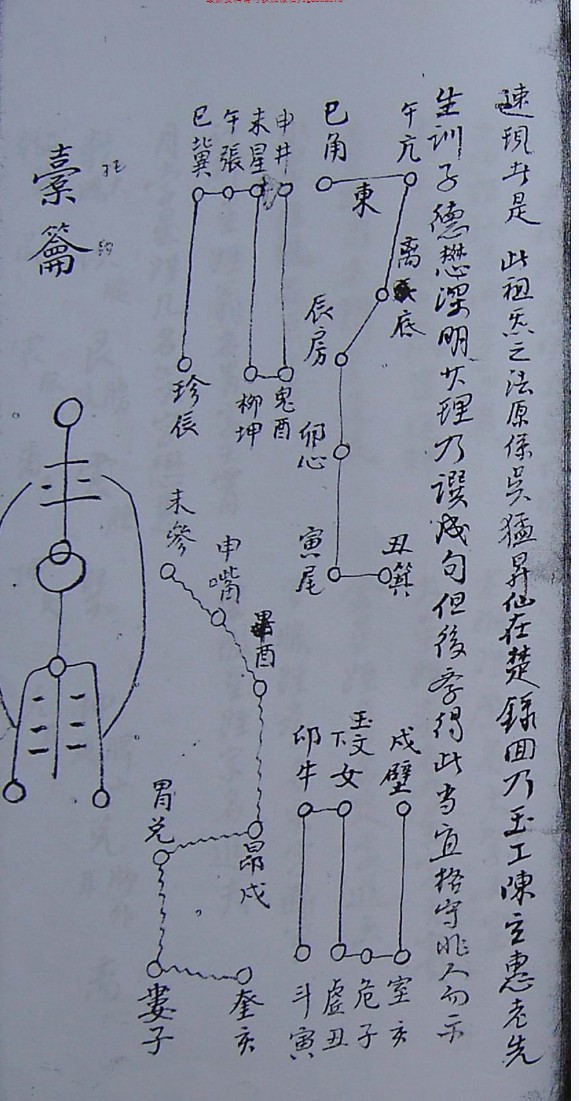 速現者是 此祖炁之法原係吳猛昇仙在楚錄回乃玉工陳立惠老先
生訓子德懋深明其理乃譔成句但後学得此当宜格守非人勿示
午亢
巳角
東
离
底
辰房
卯心
寅尾
丑箕
戌壁
玉文
下女
卯牛
室亥
危子
虛丑
斗寅
申井
未星
午張
巳翼
鬼酉
柳坤
珍辰
未參
申嘴
畢酉
昴戌
胃兑
婁子
奎亥
橐籥